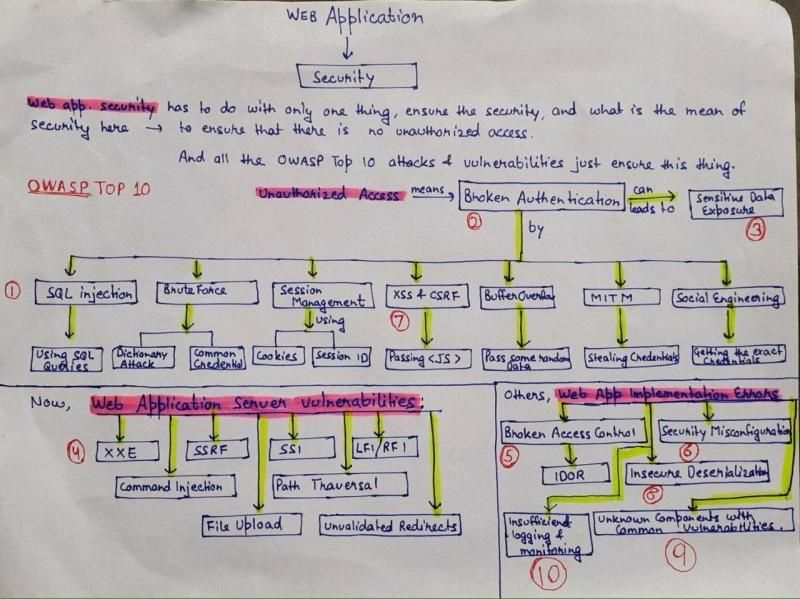 WEB Application
Security
Web app. security has to do with only one thing, ensure the security, and what is the mean of
security here → to ensure that there is no unauthorized access.
And all the OWASP Top 10 attacks & vulnerabilities just ensure this thing.
OWASP TOP 10
Unauthorized Access means Broken Authentication can leads to Sensitive Data Exposure
2
3
by
1
SQL injection
Brute Force
Session Management
XSS & CSRF
Buffer Overflow
MITM
Social Engineering
using
7
Using SQL Queries
Dictionary Attack
Common Credential
Cookies
Session ID
Passing <JS>
Pass some random Data
Stealing Credentials
Getting the exact Credentials
Now, Web Application Server Vulnerabilities:
4
XXE
SSRF
SSI
LFI/RFI
Command Injection
Path Traversal
File Upload
Unvalidated Redirects
Others, Web App Implementation Errors
Broken Access Control
Security Misconfiguration
5
6
IDOR
Insecure Deserialization
8
Insufficient logging & monitoring
Unknown Components with Common Vulnerabilities.
10
9